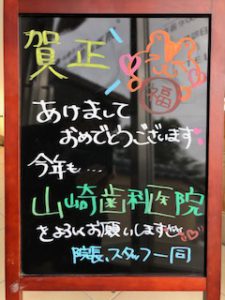 賀正
福
あけまして
おめでとうございます
今年も…
山崎歯科医院
をよろしくお願いします
院長、スタッフ一同